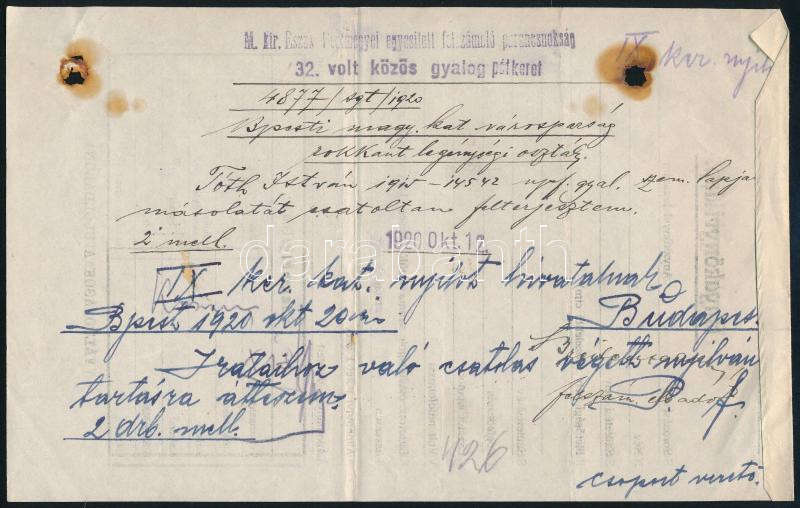 M. kir. Észak Pestmegyei egyesített felszámoló parancsnokság
32. volt közös gyalog pótkeret
IX ker. nyilv
4877/sgt/1920
Bpesti magy. kat városparság
rokkant legénységi osztály.
Tóth István 1915-14542 npf. gyal. szem. lapja
másolatát csatoltan felterjesztem.
2 mell.
1920 Okt. 1
IX ker. kat. nyilvt hivatalnak
Budapest
Bpest 1920 okt 20-án
Irataihoz való csatolás végett nyilván
tartásra átteszem.
felszám. előadó
2 drb. mell.
426
csoport vezető.
darabanth